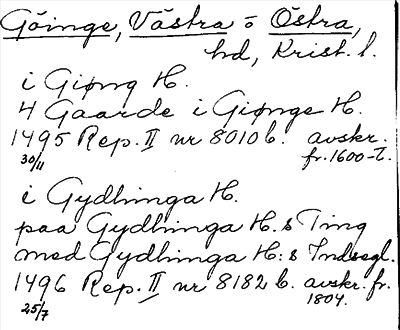 Göinge, Västra o Östra,
hd, Krist. l.
i Giøng H.
4 Gaarde i Giønge H.
1495 Rep. II nr 8010 b. avskr.
30/11 fr. 1600-t.
i Gydhinga H.
paa Gydhinga H.s Ting
med Gydhinga H:s Indsegl.
1496 Rep. II nr 8182 b. avskr. fr.
25/7 1804.